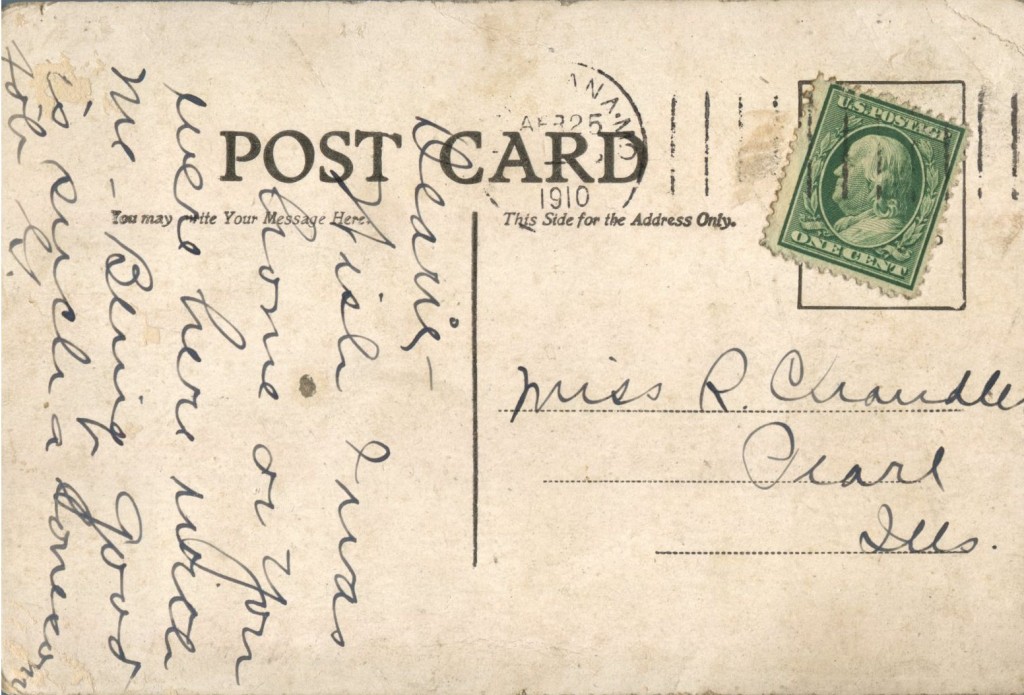 POST CARD
You may write Your Message Here.
This Side for the Address Only.
APR 25
1910
U.S. POSTAGE
ONE CENT
Dearie-
Wish I was
home or you
were here with
me - Being good
is such a lonesom
job
Miss R. Chandle
Pearl
Ills.